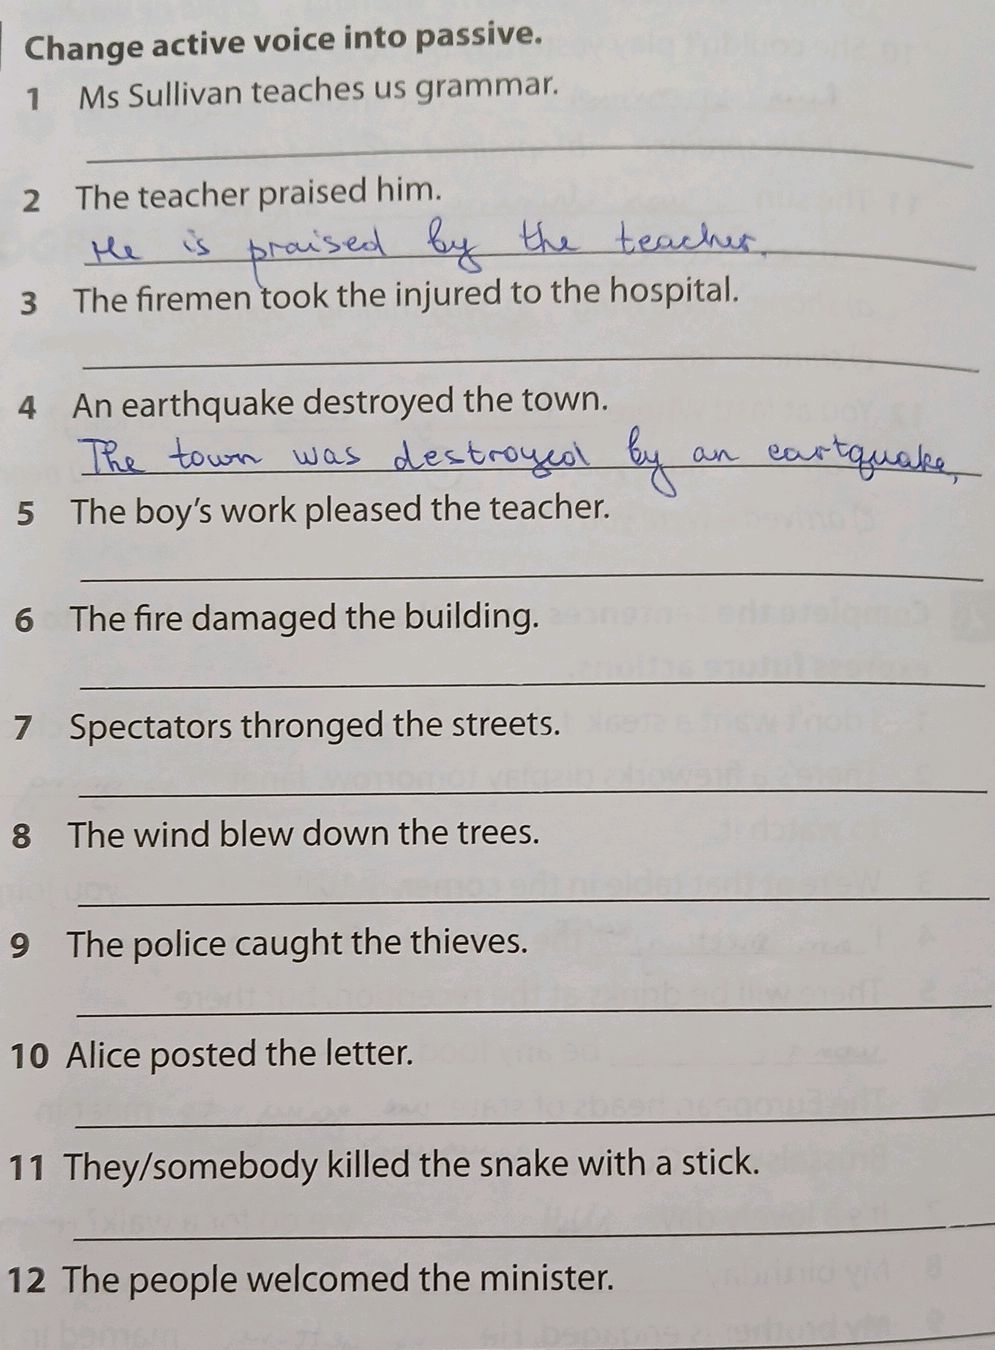 Change active voice into passive.
1 Ms Sullivan teaches us grammar.
2 The teacher praised him.
He is praised by the teacher.
3 The firemen took the injured to the hospital.
4 An earthquake destroyed the town.
The town was destroyed by an eartquake,
5 The boy's work pleased the teacher.
6 The fire damaged the building.
7 Spectators thronged the streets.
8 The wind blew down the trees.
9 The police caught the thieves.
10 Alice posted the letter.
11 They/somebody killed the snake with a stick.
12 The people welcomed the minister.